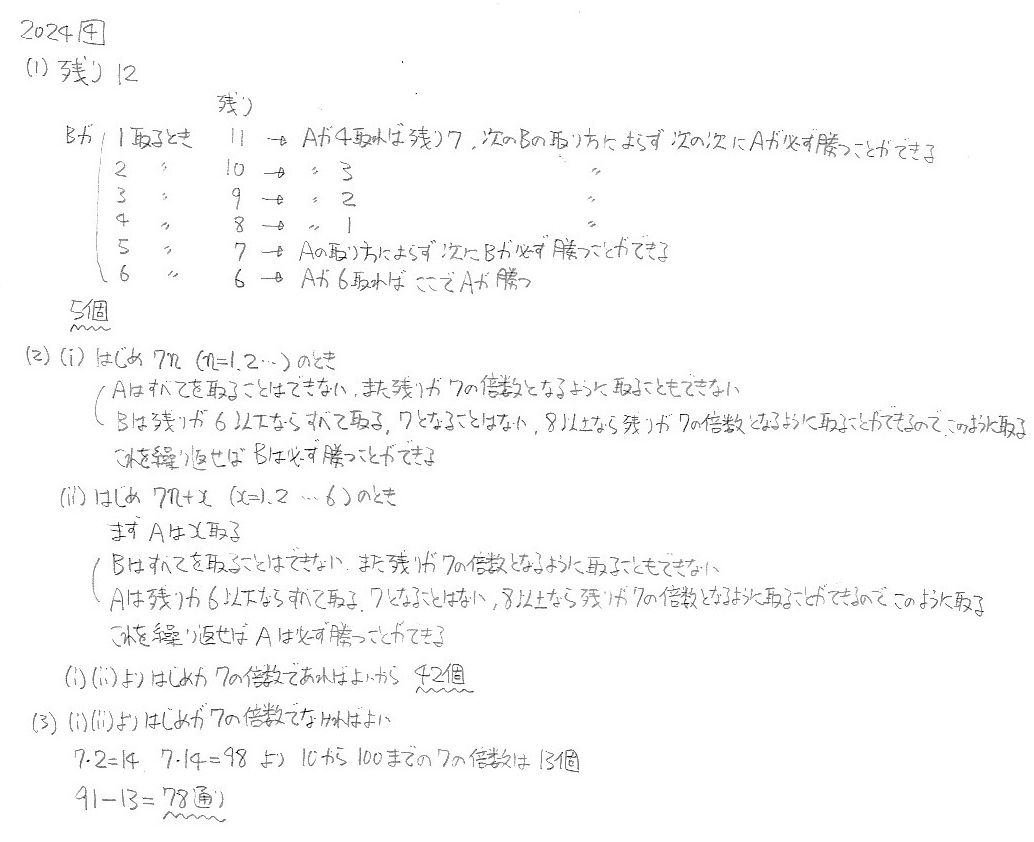 2024 4
(1) 残り 12
残り
Bが 1取るとき 11 → Aが4取れば残り7, 次のBの取り方によらず 次の次にAが必ず勝つことができる
2 〃 10 → 〃 3 〃
3 〃 9 → 〃 2 〃
4 〃 8 → 〃 1 〃
5 〃 7 → Aの取り方によらず次にBが必ず勝つことができる
6 〃 6 → Aが6取ればここでAが勝つ
5個
(2) (i) はじめ 7n (n=1.2…) のとき
Aはすべてを取ることはできない, また残りが7の倍数となるように取ることもできない
Bは残りが6以下ならすべて取る, 7となることはない, 8以上なら残りが7の倍数となるように取ることができるので, このように取る
これを繰り返せばBは必ず勝つことができる
(ii) はじめ 7n+x (x=1.2 … 6) のとき
まずAはx取る
Bはすべてを取ることはできない, また残りが7の倍数となるように取ることもできない
Aは残りが6以下ならすべて取る, 7となることはない, 8以上なら残りが7の倍数となるように取ることができるのでこのように取る
これを繰り返せばAは必ず勝つことができる
(i) (ii)よりはじめが7の倍数であればよいから 42個
(3) (i)(ii)よりはじめが7の倍数でなければよい
7・2=14 7・14=98 より 10から100までの7の倍数は13個
91-13=78通り